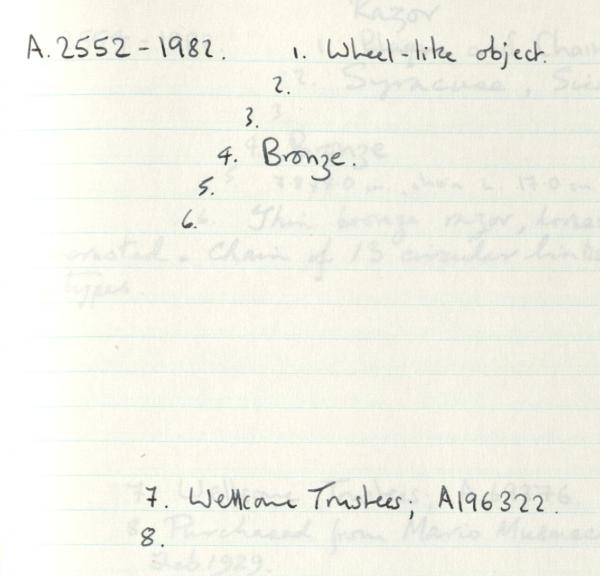 A.2552-1982. 1. Wheel-like object.
2.
3.
4. Bronze.
5.
6.
7. Wellcome Trustees; A196322.
8.